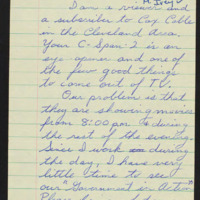 I am a viewer and
a subscriber to Cox Cable
in the Cleveland Area.
Your C-Span 2 is an
eye opener and one of the
few good things
to come out of TV.
Our problem is that
they are showing movies
from 8:00 pm to during
the rest of the evening.
Since I work during
the day, I have very
little time to see
our "Government in Action"